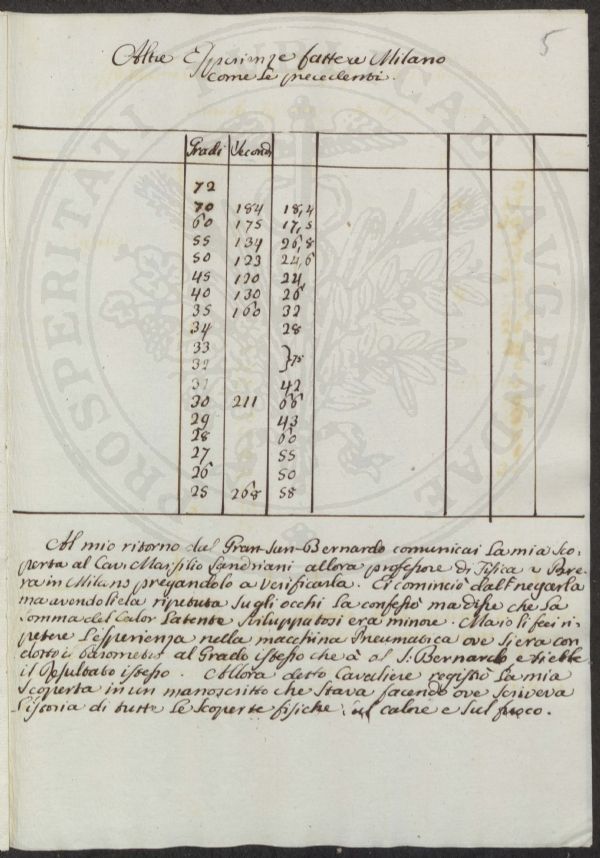 5
Altre Esperienze fatte e Milano
come le precedenti.
Gradi Secondi
72
70 184 18,4
60 175 17,5
55 134 26,8
50 123 24,6
45 120 24
40 130 26
35 160 32
34 28
33
32 }75
31 42
30 211 66
29 43
28 60
27 55
26 50
25 268 58
Al mio ritorno dal Gran-San-Bernardo comunicai la mia sco-
perta al Cav: Marsilio Landriani allora professore di Fisica a Bre-
ra in Milano pregandolo a verificarla. Ei cominciò dal negarla
ma avendoliela riputata sugli occhi la confessò ma disse che la
somma del Calor Latente sviluppatosi era minore. Ma io li feci ri-
petere l'esperienza nella macchina Pneumatica ove si era con
dotto il barometro al Grado istesso che à al S: Bernardo e si ebbe
il Resultato istesso. Allora detto Cavaliere registrò la mia
scoperta in un manoscritto che stava facendo ove scriveva
l'istoria di tutte le scoperte fisiche sul calore e sul fuoco.
PROSPERITATI PUBLICAE AUGENDAE